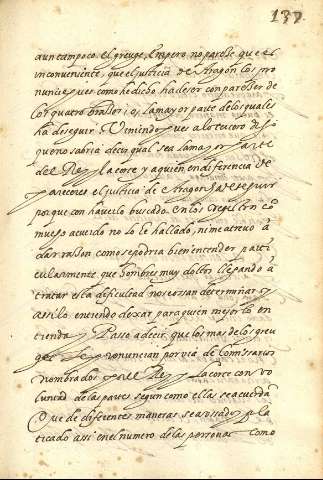 137
aun tampoco el greuge, Empero no parese que es
inconveniente, que el justicia de Aragon los pro
nuncie pues como he dicho ha de ser con parescer de
los quatro braços o la mayor parte de los quales
ha de seguir. Veniendo pues a lo tercero digo
que no sabria decir qual sea la mayor parte
del Rey, y la corte y a quien en diferencia de
paresceres el justicia de Aragon ha de seguir
porque con havello buscado en los Registros con
mucho acuerdo no lo he hallado, ni me atrevo a
dar rasson como se podria bien entender parti
cularmente que hombres muy doctos llegando a
tratar esta dificultad no osaron determinar y
assi lo entiendo dexar para quien mejor lo en
tienda y Passo a decir que los mas de los greu
ges se pronuncian por via de Comissarios
nombrados por el Rey y la corte con vo
luntad de las partes segun como ellas se acuerdan
que de diferentes maneras se a usado y pla
ticado assi en el numero de las personas como